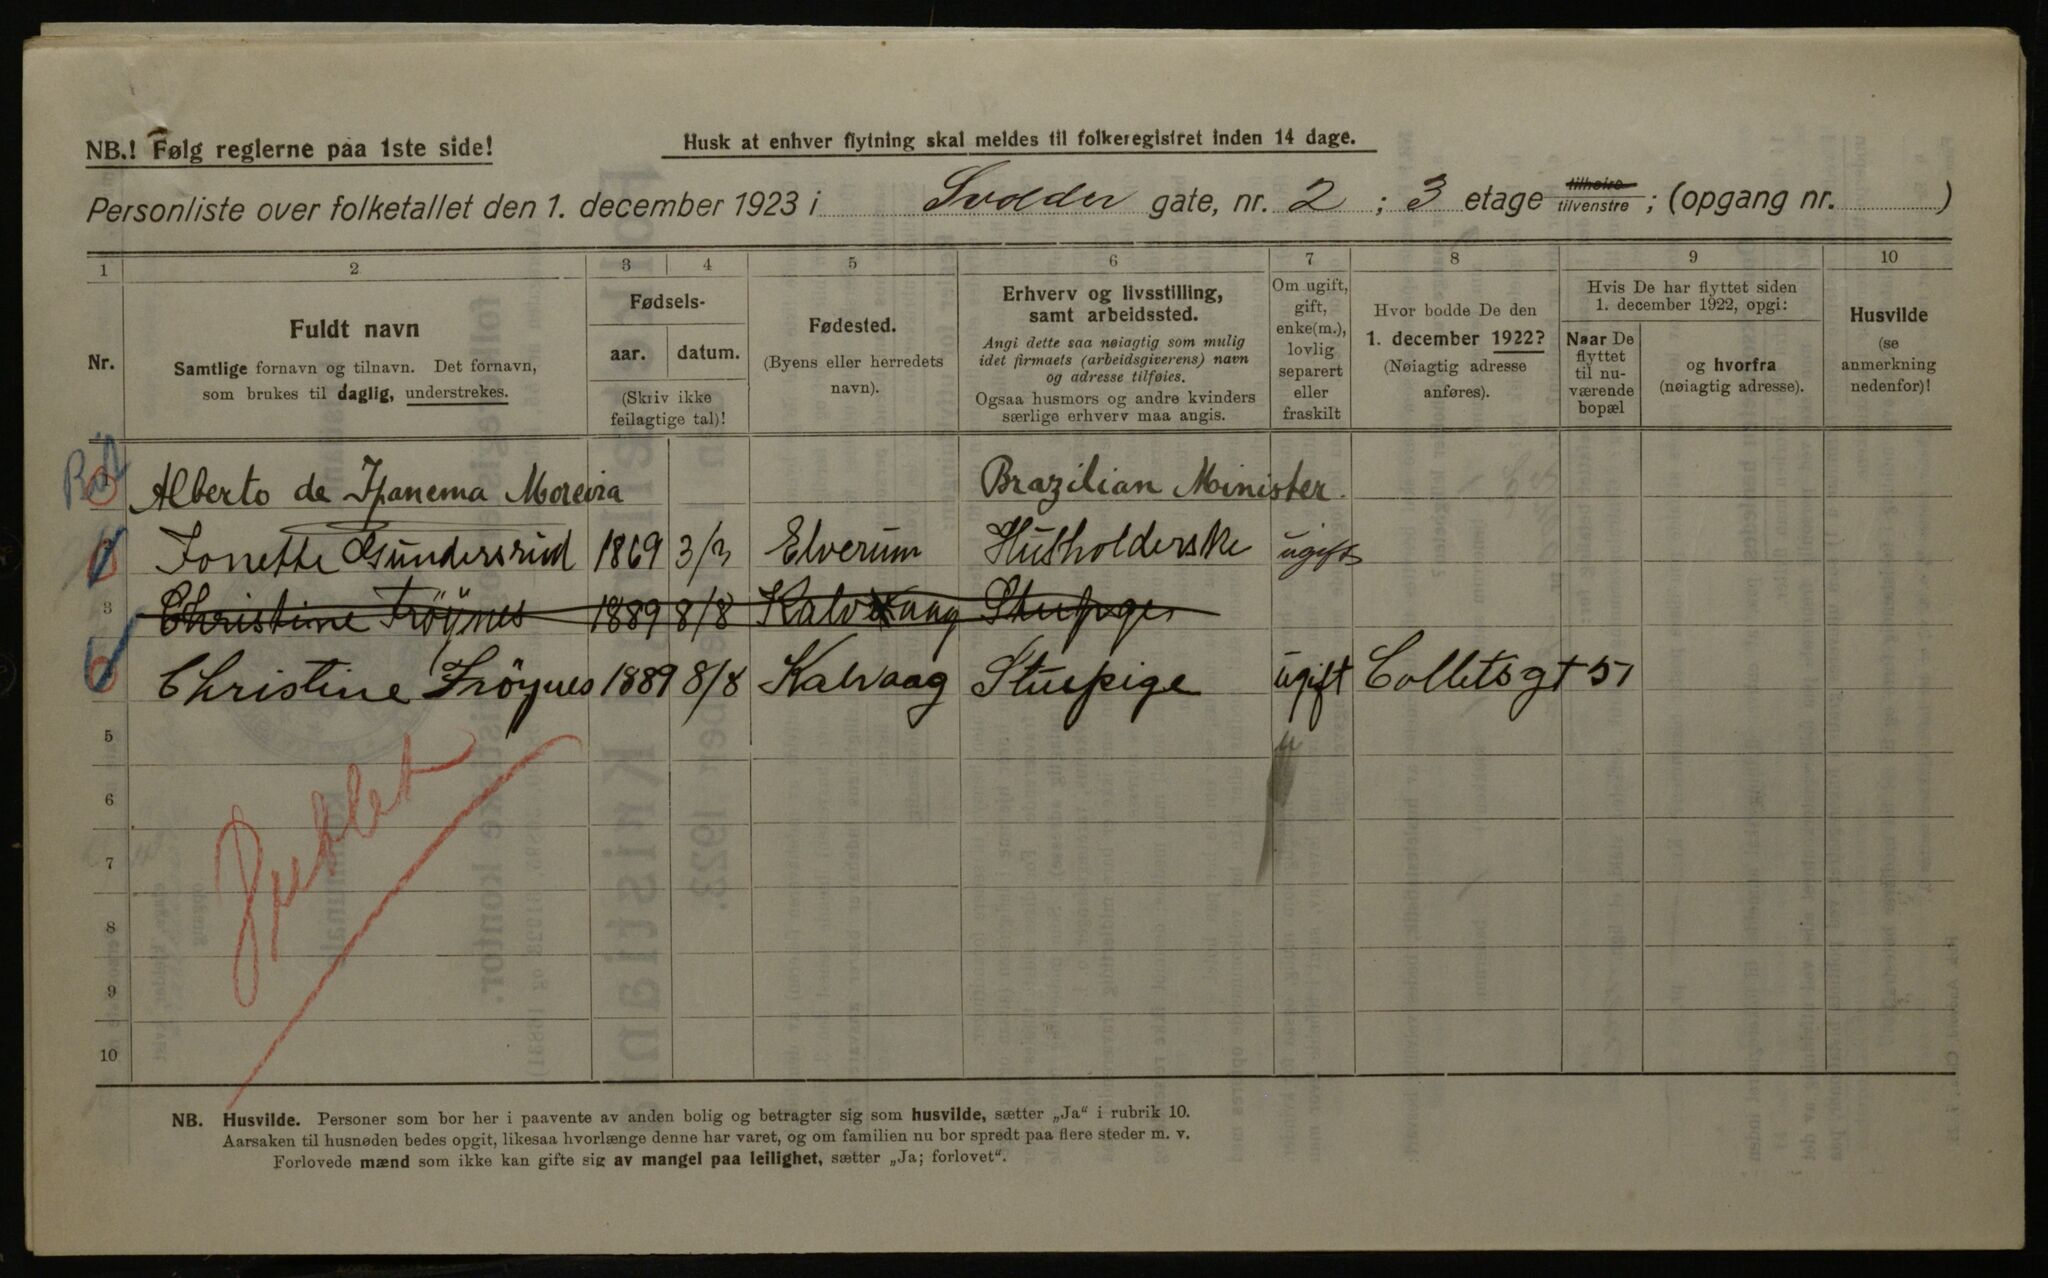 NB.! Følg reglerne paa 1ste side!
Husk at enhver flytning skal meldes til folkeregistret inden 14 dage.
Personliste over folketallet den 1. december 1923 i Svolder gate, nr. 2 ; 3 etage tilhøire tilvenstre ; (opgang nr. )
1 2 3 4 5 6 7 8 9 10
Nr.
Fuldt navn
Samtlige fornavn og tilnavn. Det fornavn,
som brukes til daglig, understrekes.
Fødsels-
aar. datum.
(Skriv ikke
feilagtige tal)!
Fødested.
(Byens eller herredets
navn).
Erhverv og livsstilling,
samt arbeidssted.
Angi dette saa nøiagtig som mulig
idet firmaets (arbeidsgiverens) navn
og adresse tilføies.
Ogsaa husmors og andre kvinders
særlige erhverv maa angis.
Om ugift,
gift,
enke(m.),
lovlig
separert
eller
fraskilt
Hvor bodde De den
1. december 1922?
(Nøiagtig adresse
anføres).
Hvis De har flyttet siden
1. december 1922, opgi:
Naar De
flyttet
til nu-
værende
bopæl
og hvorfra
(nøiagtig adresse).
Husvilde
(se
anmerkning
nedenfor)!
1 Alberto de Ipanema Moreira Brazilian Minister.
2 Jonette Gundersrud 1869 3/3 Elverum Husholderske ugift
3 Christine Fröynes 1889 8/8 Kalvaag Stuepige
Christine Fröynes 1889 8/8 Kalvaag Stuepige ugift Colletsgt 51
5
6
7
8
9
10
NB. Husvilde. Personer som bor her i paavente av anden bolig og betragter sig som husvilde, sætter „Ja“ i rubrik 10.
Aarsaken til husnøden bedes opgit, likesaa hvorlænge denne har varet, og om familien nu bor spredt paa flere steder m. v.
Forlovede mænd som ikke kan gifte sig av mangel paa leilighet, sætter „Ja; forlovet“.